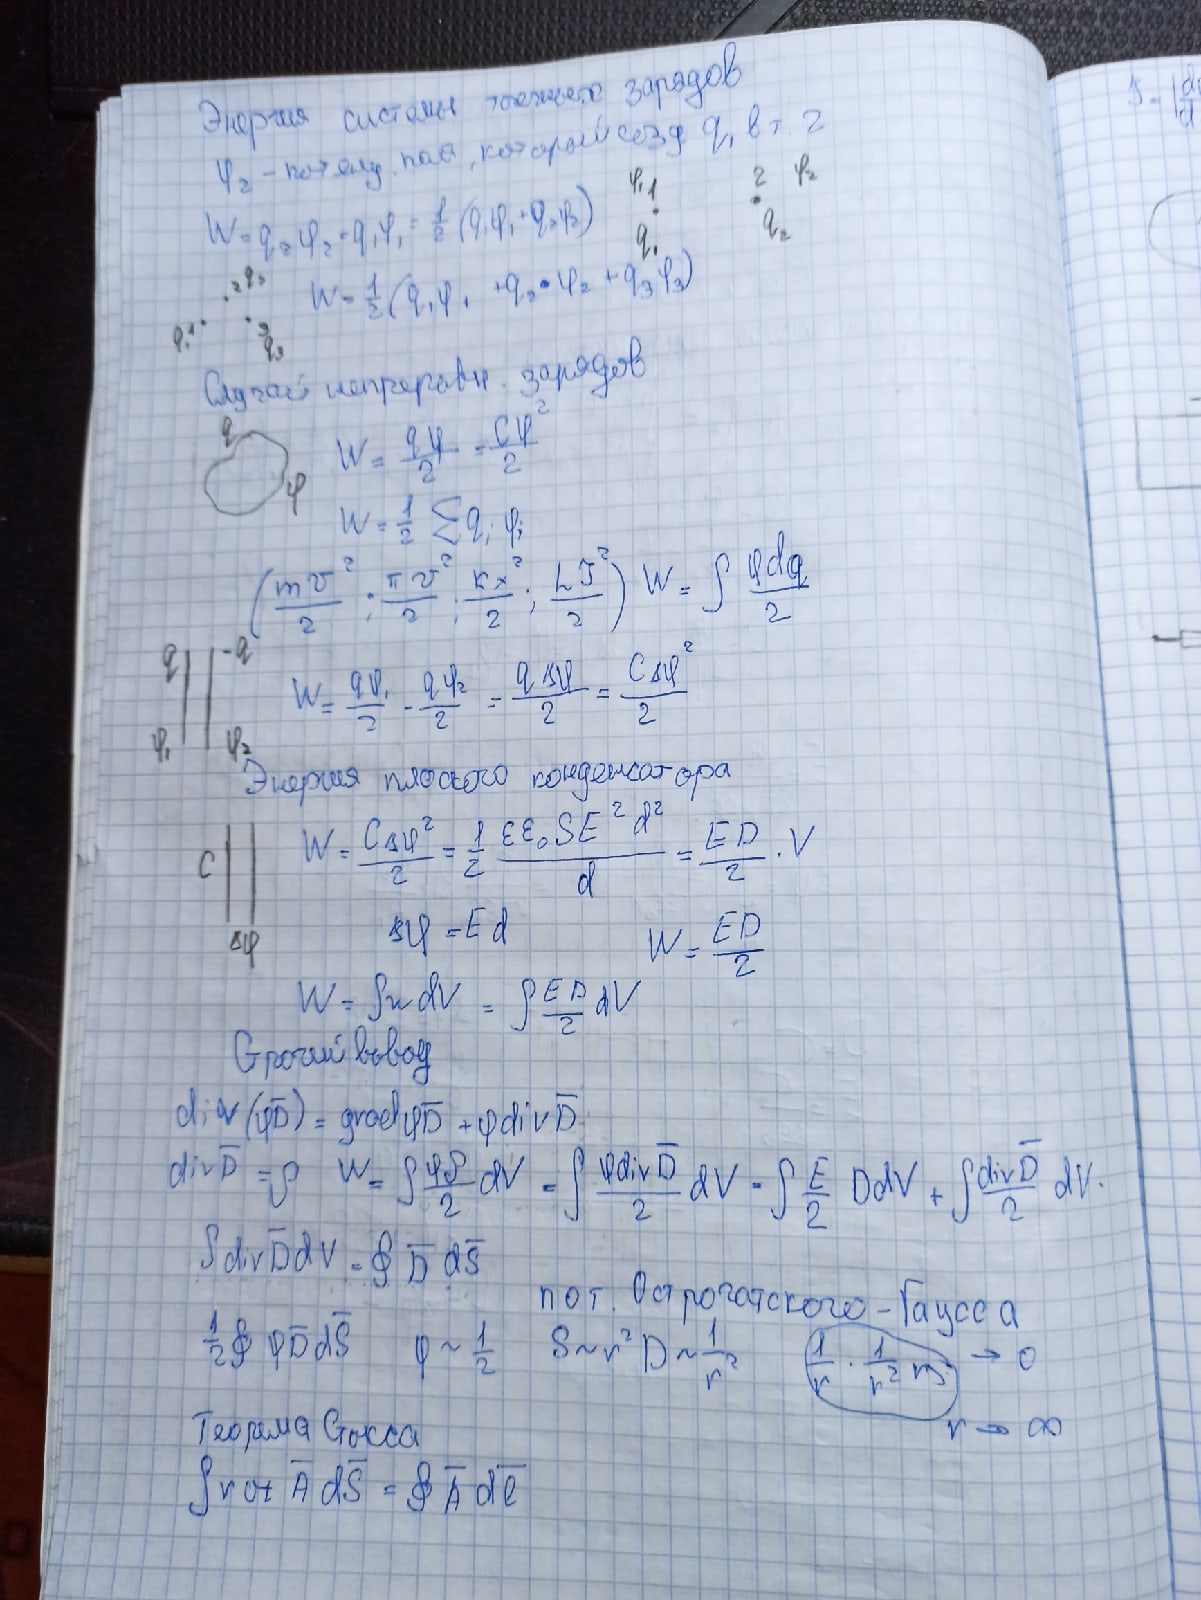 Энергия системы точечных зарядов
φ₂ - потенц. поля, который созд q₁ в т. 2
W = q₂φ₂ = q₁φ₁ = 1/2 (q₁φ₁ + q₂φ₂)
φ₁ 1 2 φ₂
q₁ q₂
W = 1/2 (q₁φ₁ + q₂·φ₂ + q₃φ₃)
2 q₂
1 3
q₃
Случай непрерывн. зарядов
q φ
W = qφ/2 = Cφ²/2
W = 1/2 ∑ qᵢ φᵢ
(mv²/2 ; πv²/2 ; kx²/2 ; LI²/2) W = ∫ φdq/2
q -q
φ₁ φ₂
W = qφ₁/2 - qφ₂/2 = qΔφ/2 = CΔφ²/2
Энергия плоского конденсатора
C Δφ
W = CΔφ²/2 = 1/2 εε₀SE²d²/d = ED/2 · V
Δφ = Ed W = ED/2
W = ∫w dV = ∫ ED/2 dV
Строгий вывод
div(φD̅) = gradφD̅ + φdivD̅
divD̅ = ρ W = ∫ φρ/2 dV = ∫ φdivD̅/2 dV = ∫ E/2 DdV + ∫ divD̅/2 dV.
∫divD̅dV = ∮ D̅ dS̅
по т. Остроградского-Гаусса
1/2 ∮ φD̅dS̅ φ ~ 1/2 S~r² D~1/r² 1/r · 1/r² → 0
r → ∞
Теорема Стокса
∫rot A̅ dS̅ = ∮ A̅ dl̅